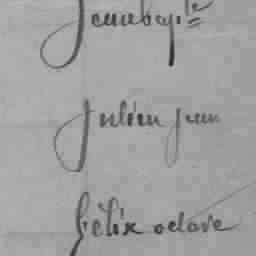 Jeanbapte
Julien jean
Félix octave